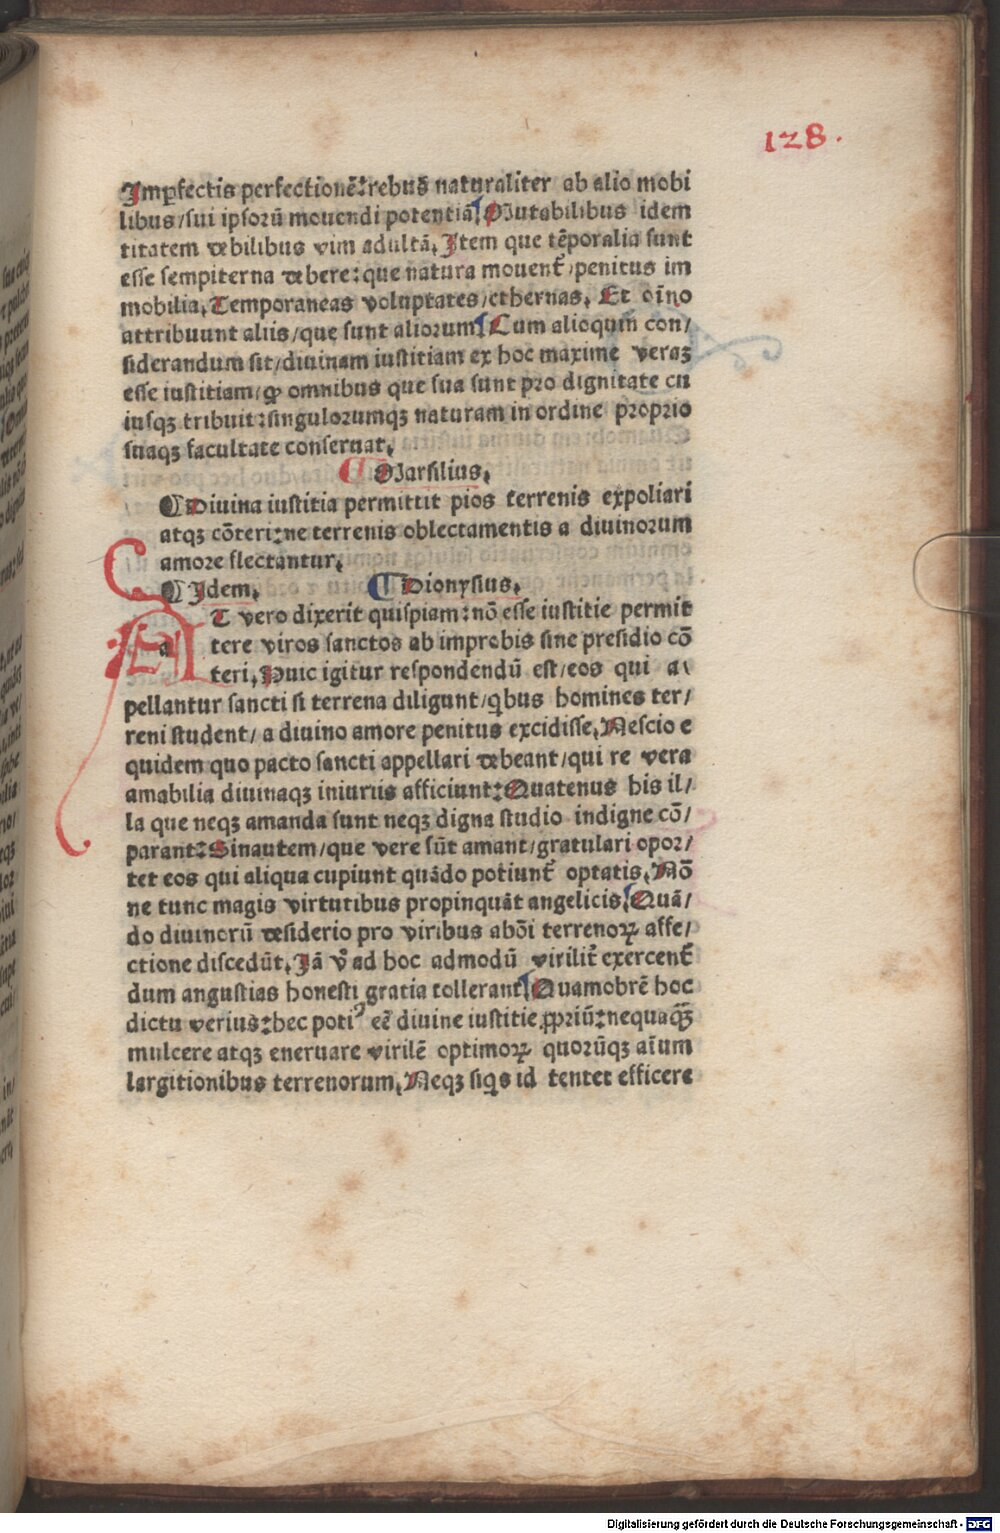 128.
Imꝑfectis perfectionē: rebus̄ naturaliter ab alio mobi
libus/sui ipsorū mouendi potentiā. Mutabilibus idem
titatem debilibus vim adultā. Item que tēporalia sunt
esse sempiterna debere: que natura mouent̄/penitus im
mobilia. Temporaneas voluptates/ethernas. Et oīno
attribuunt aliis/que sunt aliorum. Cum alioquin con/
siderandum sit/diuinam iustitiam ex hoc maxime veraꝫ
esse iustitiam/ꝙ omnibus que sua sunt pro dignitate cu
iusqꝫ tribuit: singulorumqꝫ naturam in ordine proprio
suaqꝫ facultate conseruat.
¶ Marsilius.
¶ Diuina iustitia permittit pios terrenis expoliari
atqꝫ cōteri: ne terrenis oblectamentis a diuinorum
amore flectantur.
¶ Idem. ¶ Dionysius.
AT vero dixerit quispiam: nō esse iustitie permit
tere viros sanctos ab improbis sine presidio cō
teri. Huic igitur respondendū est/eos qui a
pellantur sancti si terrena diligunt/qͥbus homines ter/
reni student/a diuino amore penitus excidisse. Nescio e
quidem quo pacto sancti appellari debeant/qui re vera
amabilia diuinaqꝫ iniuriis afficiunt: Quatenus his il/
la que neqꝫ amanda sunt neqꝫ digna studio indigne cō/
parant: Sinautem/que vere sūt amant/gratulari opor/
tet eos qui aliqua cupiunt quādo potiunt̄ optatis. Nō
ne tunc magis virtutibus propinquāt angelicis. Quā/
do diuinorū desiderio pro viribus abōi terrenoꝝ affe/
ctione discedūt. Iā v̄o ad hoc admodū virilit̄ exercent̄
dum angustias honesti gratia tollerant. Quamobrē hoc
dictu verius: hec potiꝰ eē diuine iustitie ꝓpriū: nequaꝙ̄
mulcere atqꝫ eneruare virilē optimoꝝ quorūqꝫ aīum
largitionibus terrenorum. Neqꝫ siqͥs id tentet efficere
Digitalisierung gefördert durch die Deutsche Forschungsgemeinschaft - DFG